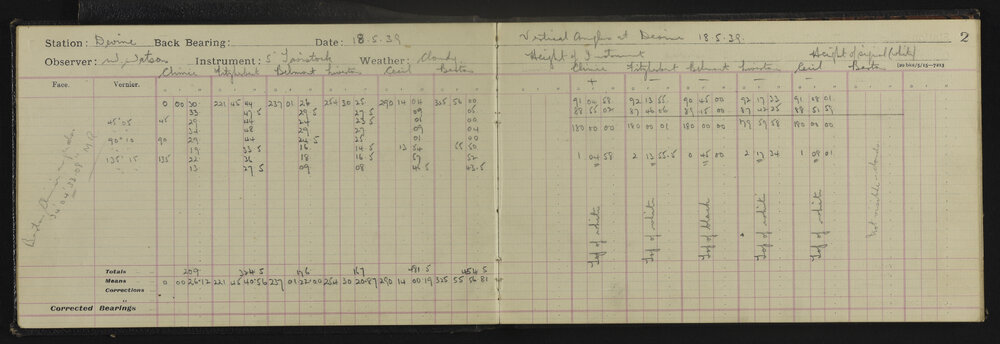 Station: Devine Back Bearing: Date: 18.5.39
Observer: W. Watson Instrument: 5" Tavistock Weather: Cloudy
Face. Vernier. Climie Fitzherbert Belmont Cecil
0 00 30 221 45 44 237 01 26 254 30 25 290 14 04 325 56 00
33 47 5 29 5 27 5 09 05
45°05 45 29 44 24 23 5 01
34 48 29 27 09 04
90°10 90 29 25 01 00
19 33 5 16 14 5 13 54 55 50
135°15 135 22 36 18 16 5 57 52
13 27 5 09 08 43.5
Totals 209 324 5 176 167 454 5
Means 0 00 26.12 221 45 40.56 237 01 22.00 254 30 20.87 290 14 00 19 325 55 56 81
Corrections
Corrected Bearings
Vertical Angles at Devine 18.5.39. 2
Height of Instrument Height of signal
Climie Fitzherbert Belmont Cecil
+ — — — +
91 04 58 92 13 55 90 45 00 92 17 33 91 08 01
88 55 02 87 46 06 89 15 00 87 42 25 88 51 59
180 00 00 180 00 01 180 00 00 179 59 58 180 00 00
1 04 58 2 13 55.5 0 45 00 2 17 34 1 08 01
Top of white
Top of white
Top of black
Top of white
Top of white